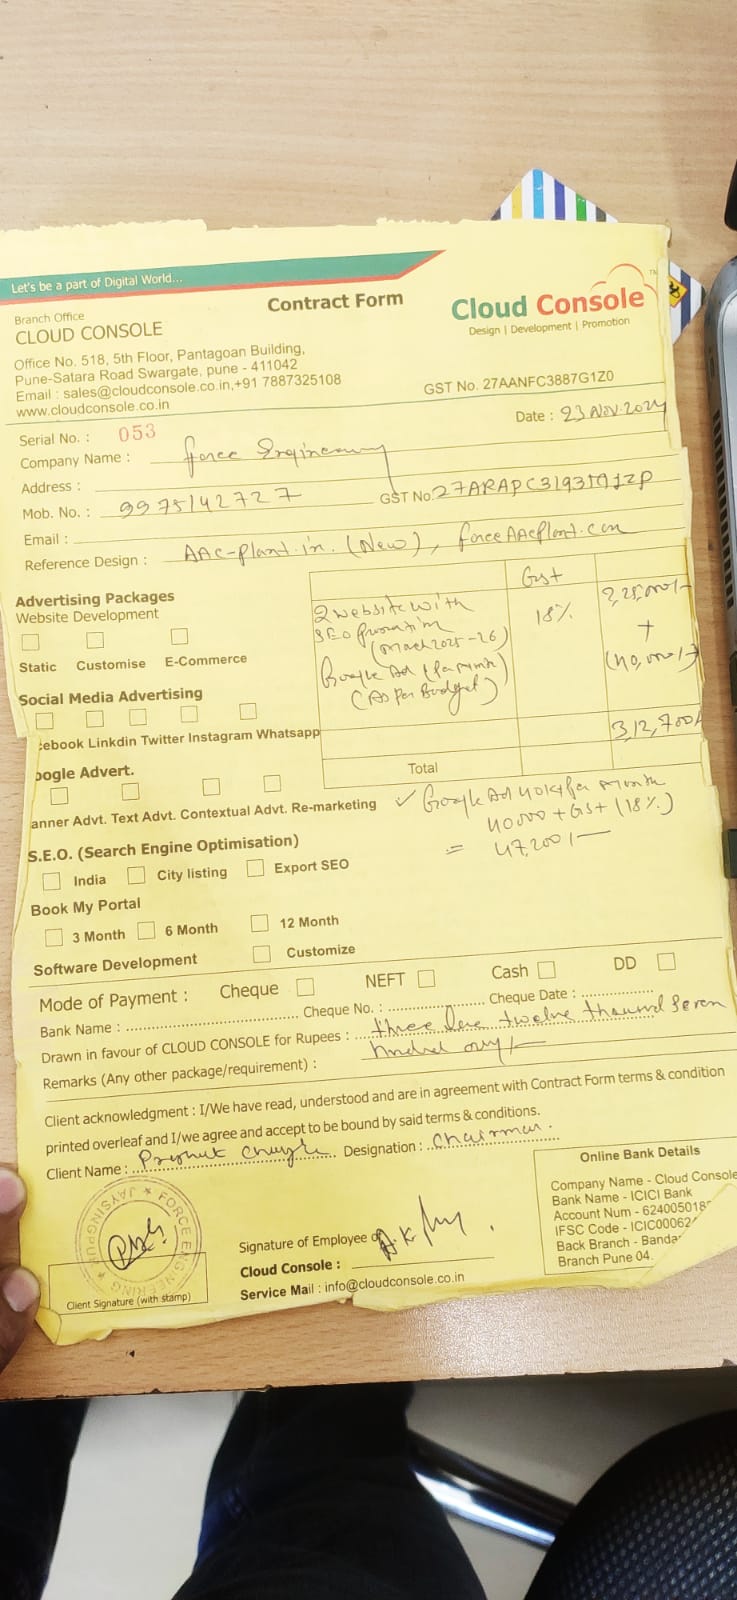 Let's be a part of Digital World...
Branch Office
CLOUD CONSOLE
Contract Form
Cloud Console
TM
Design | Development | Promotion
Office No. 518, 5th Floor, Pantagoan Building,
Pune-Satara Road Swargate, pune - 411042
Email : sales@cloudconsole.co.in,+91 7887325108
www.cloudconsole.co.in
GST No. 27AANFC3887G1Z0
Serial No. : 053
Date : 23 Nov. 2024
Company Name : Force Engineering
Address :
Mob. No. : 9975142727
GST No.
Email :
Reference Design : AAC-Plant.in. (New), forceAACPlant.com
Advertising Packages
Website Development
Static Customise E-Commerce
Social Media Advertising
cebook Linkdin Twitter Instagram Whatsapp
oogle Advert.
anner Advt. Text Advt. Contextual Advt. Re-marketing
Gst
2 website with
SEO Promotion
(March 2025-26)
18%
2,25,000/-
+
(40,000/-)
Google Ad (Per month)
(As Per Budget)
3,12,700/-
Total
✓ Google Ad 40K per month
40000 + GST (18%)
= 47,200/-
S.E.O. (Search Engine Optimisation)
India City listing Export SEO
Book My Portal
3 Month 6 Month 12 Month
Software Development Customize
Mode of Payment : Cheque NEFT Cash DD
Bank Name : Cheque No. : Cheque Date :
Drawn in favour of CLOUD CONSOLE for Rupees : three twelve thousand seven
hundred only/-
Remarks (Any other package/requirement) :
Client acknowledgment : I/We have read, understood and are in agreement with Contract Form terms & condition
printed overleaf and I/we agree and accept to be bound by said terms & conditions.
Client Name : Designation : Chairman.
FORCE ENGINEERING ★ JAYSINGPUR ★
Client Signature (with stamp)
Signature of Employee of
Cloud Console :
Service Mail : info@cloudconsole.co.in
Online Bank Details
Company Name - Cloud Console
Bank Name - ICICI Bank
Account Num - 624005018
IFSC Code - ICIC00062
Back Branch - Banda
Branch Pune 04.